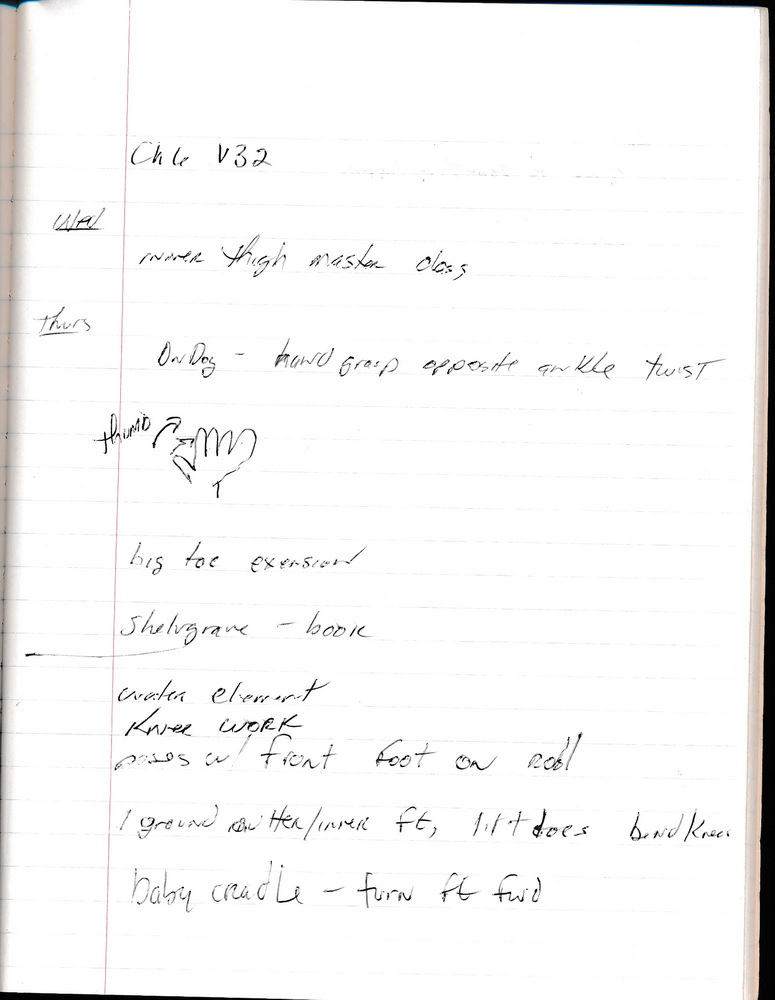 V32
Wed
inner thigh master class
Thurs
DnDog - hand grasp opposite ankle twist
thumb
big toe exension
- book
water element
Knee work
poses w/ front foot on roll
1 ground outter/inner ft, lift toes bend knees
baby cradle - turn ft fwd